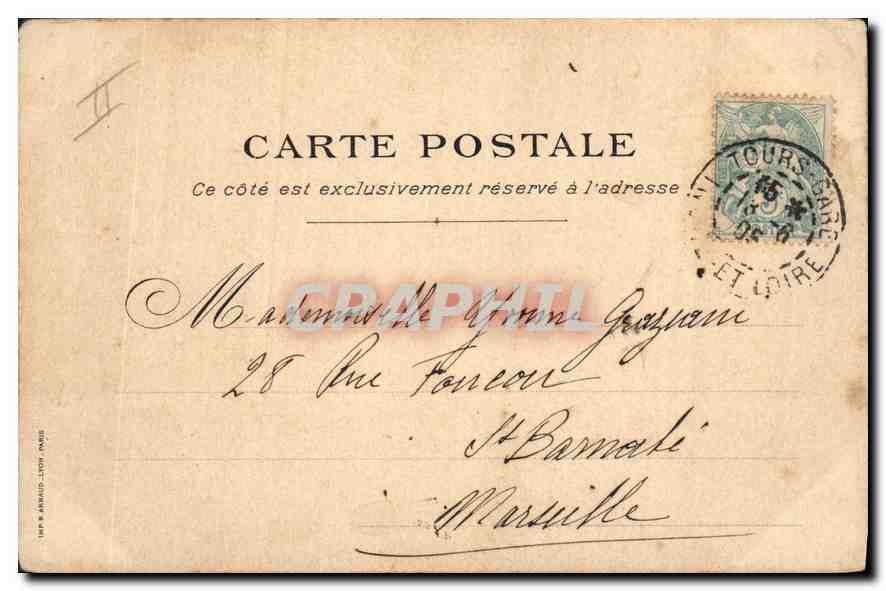 II
CARTE POSTALE
Ce côté est exclusivement réservé à l'adresse
TOURS-GARE
ET LOIRE
CPAPHIL
Mademoiselle Yvonne Graziani
28 Rue
St Barnabé
Marseille
IMP. B. ARNAUD. LYON. PARIS